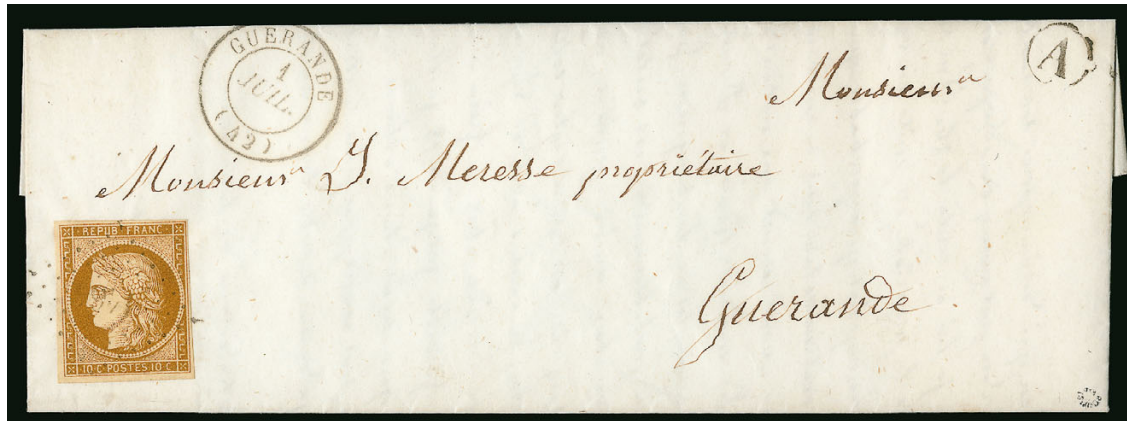 GUERANDE
1
JUIL.
(42)
A
Monsieur
Monsieur J. Meresse propriétaire
REPUB. FRANC.
10·C·POSTES 10·C
Guerande